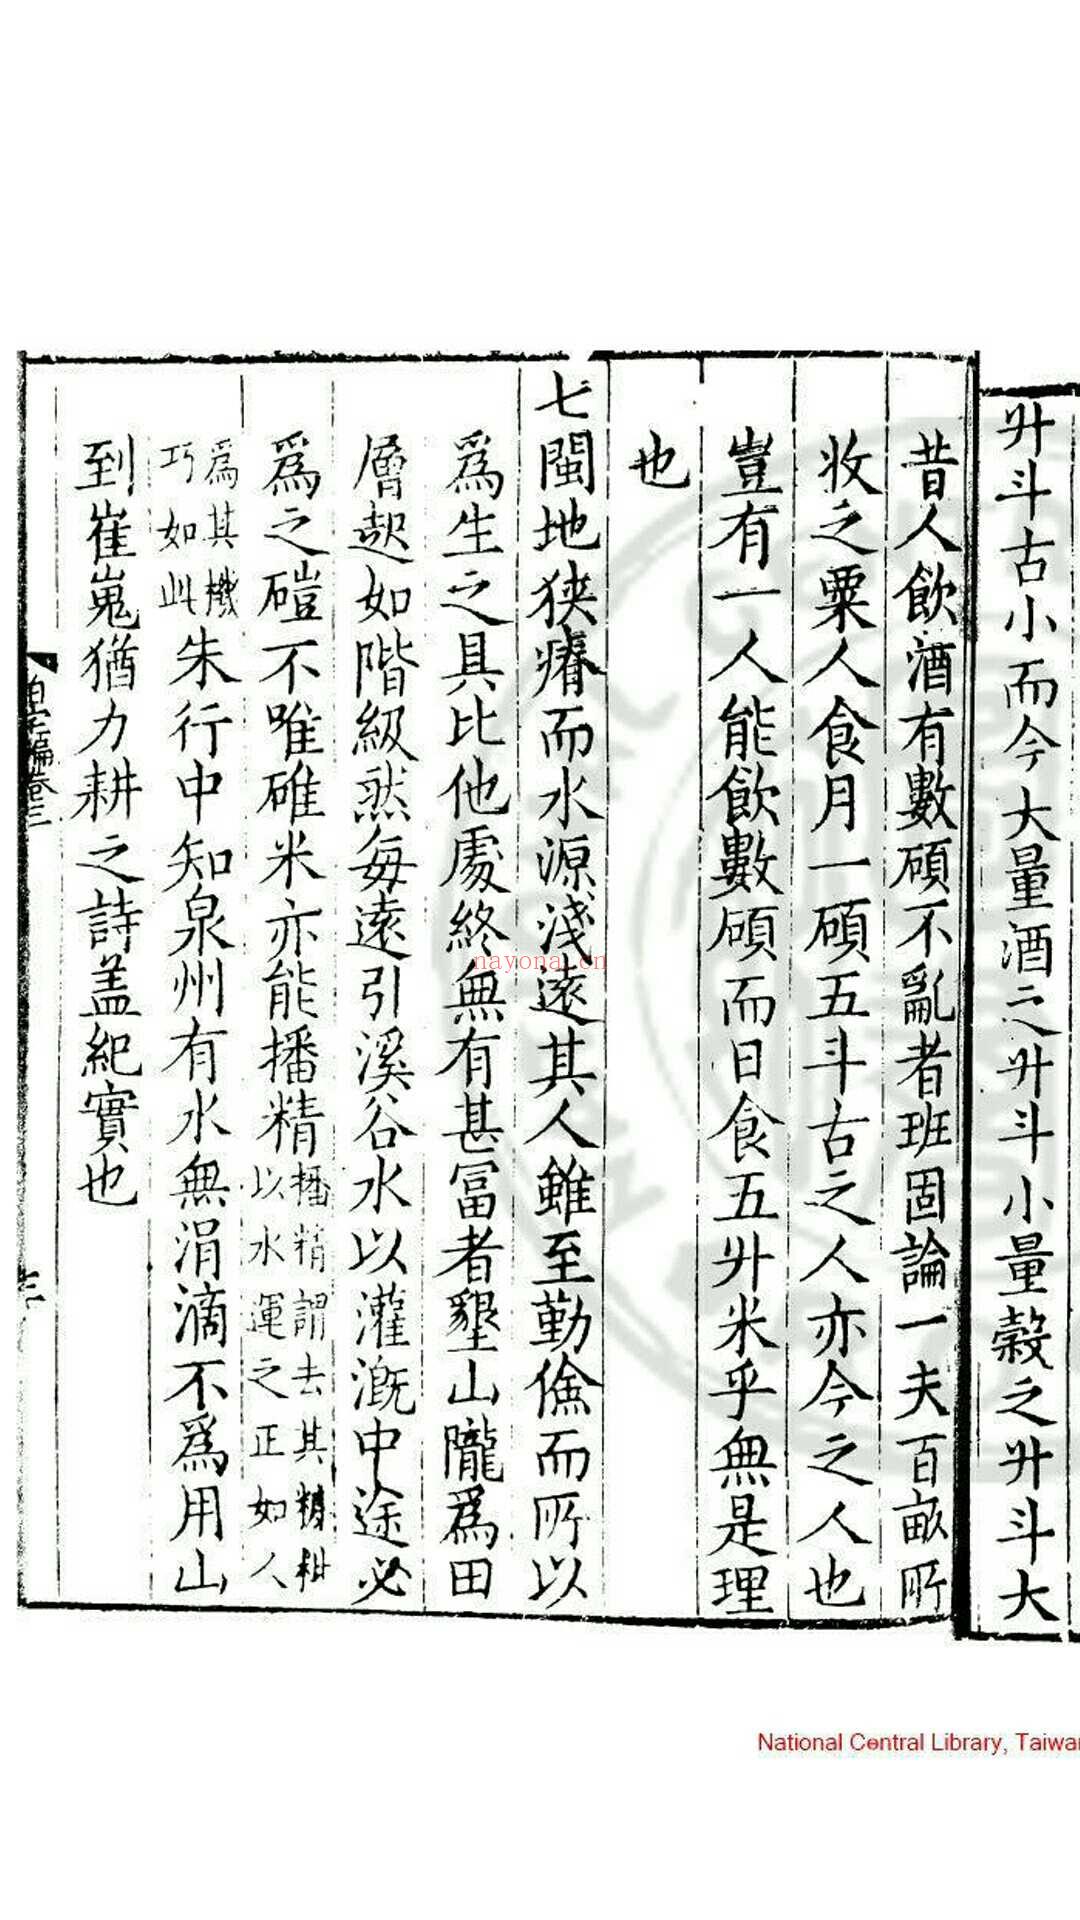 升斗古小而今大量酒之升斗小量穀之升斗大
昔人飲酒有數碩不亂者班固論一夫百畝所
收之粟人食月一碩五斗古之人亦今之人也
豈有一人能飲數碩而日食五升米乎無是理
也
七閩地狹瘠而水源淺遠其人雖至勤儉而所以
為生之具比他處終無有甚富者墾山隴為田
層起如階級然每遠引溪谷水以灌溉中途必
為之磑不唯碓米亦能播精播精謂去其糠粃以水運之正如人
為其機巧如此朱行中知泉州有水無涓滴不為用山
到崔嵬猶力耕之詩蓋紀實也
泊宅編卷三
nayona.cn
National Central Library, Taiwan